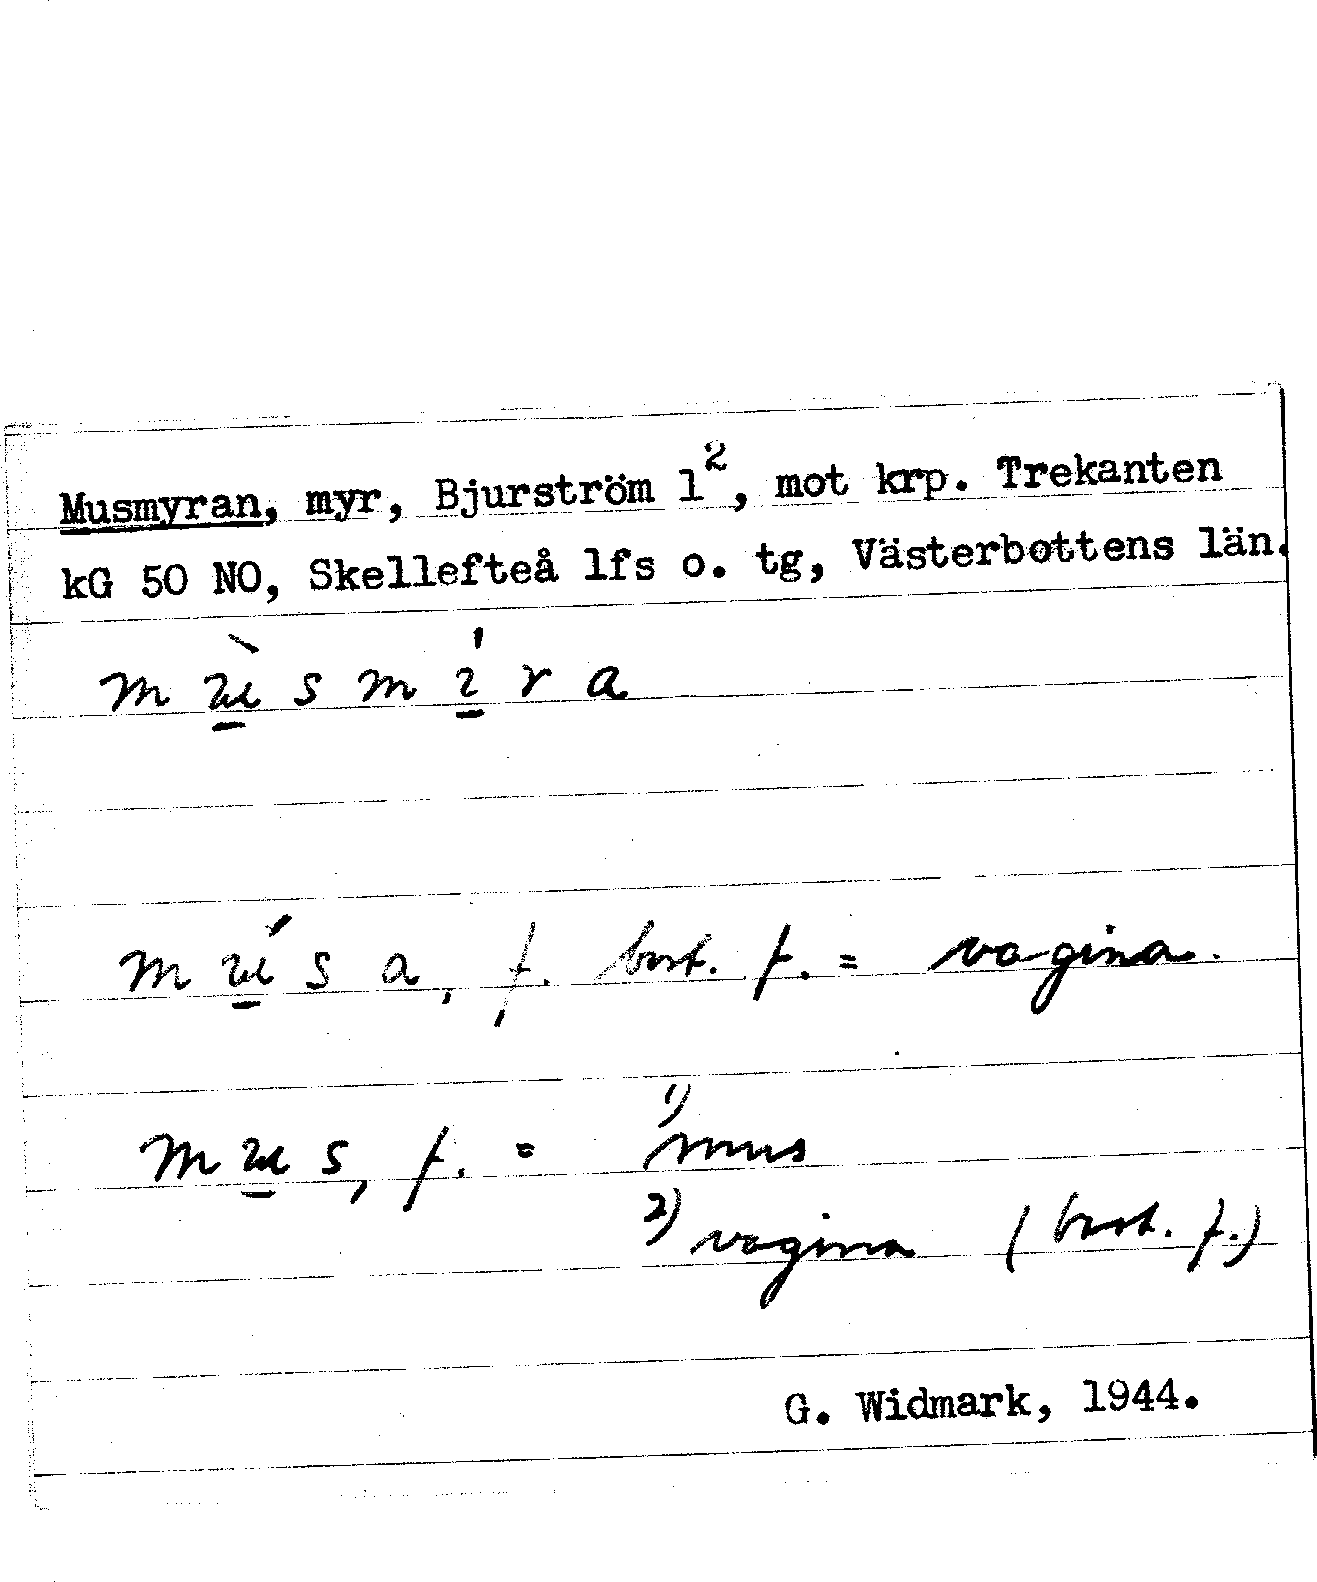 Musmyran, myr, Bjurström 1², mot krp. Trekanten
kG 50 NO, Skellefteå lfs o. tg, Västerbottens län.
a, f. best. f. = vagina.
f. = 1) mus
2) vagina (best. f.)
G. Widmark, 1944.